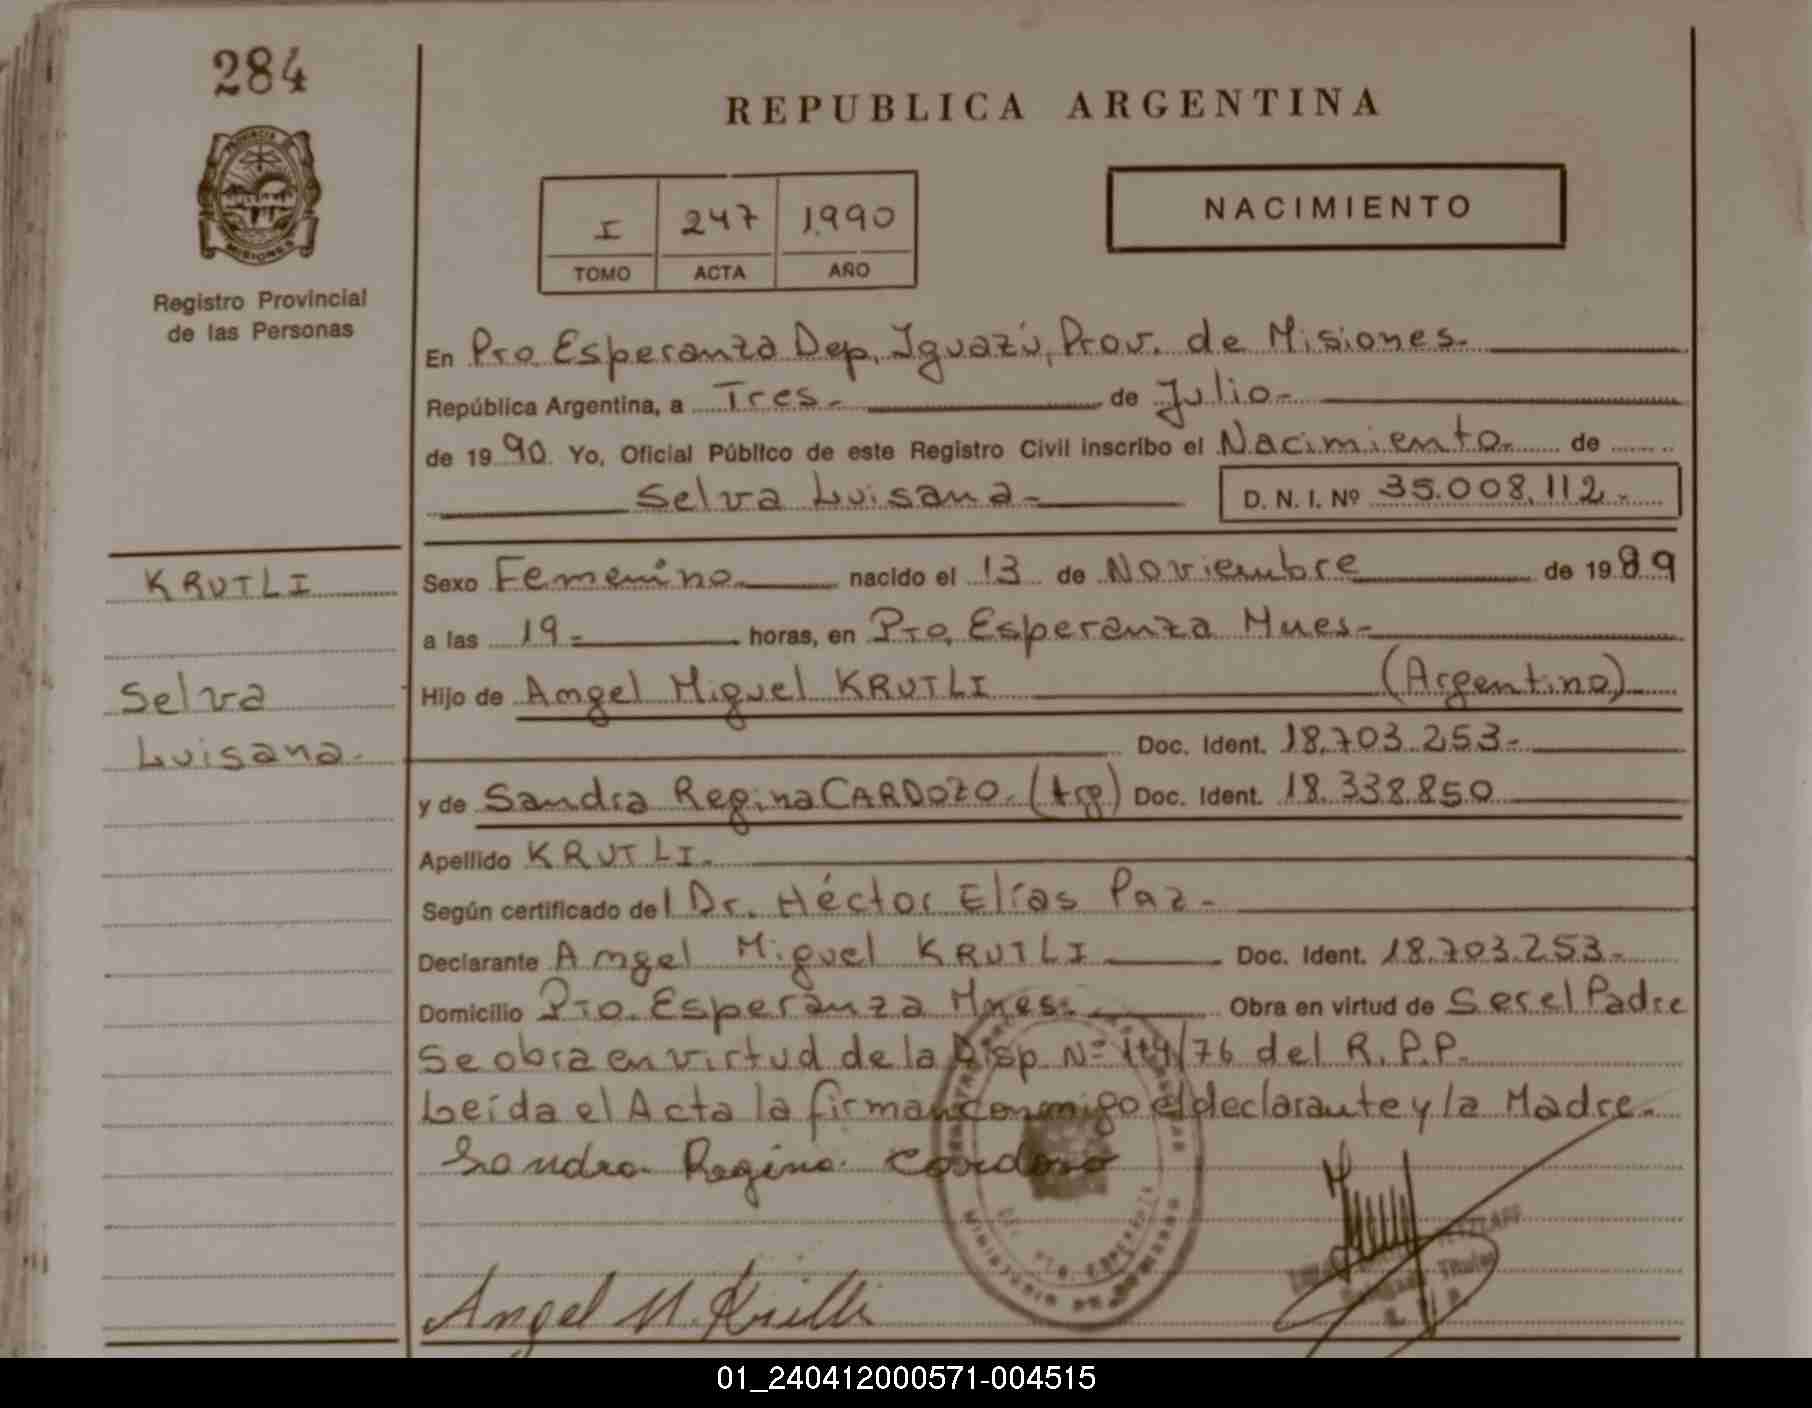 284
PROVINCIA DE
MISIONES
Registro Provincial
de las Personas
REPUBLICA ARGENTINA
I 247 1990
TOMO ACTA AÑO
NACIMIENTO
En Pto. Esperanza Dep. Iguazú, Prov. de Misiones.
República Argentina, a Tres.- de Julio.-
de 1990. Yo, Oficial Público de este Registro Civil inscribo el Nacimiento. de
Selva Luisana.- D. N. I. Nº 35.008.112.-
KRUTLI
Selva
Luisana.-
Sexo Femenino nacido el 13 de Noviembre de 1989
a las 19.- horas, en Pto. Esperanza Mnes.-
Hijo de Angel Miguel KRUTLI (Argentino)
Doc. Ident. 18.703.253.-
y de Sandra Regina CARDOZO. (Arg) Doc. Ident. 18.338.850
Apellido KRUTLI.
Según certificado del Dr. Héctor Elías Paz.-
Declarante Angel Miguel KRUTLI Doc. Ident. 18.703.253.-
Domicilio Pto. Esperanza Mnes. Obra en virtud de Ser el Padre
Se obra en virtud de la Disp. Nº /76 del R.P.P.
Leída el Acta la firman conmigo el declarante y la Madre.
Sandra Regina Cardozo
Angel M. Krutli
01_240412000571-004515